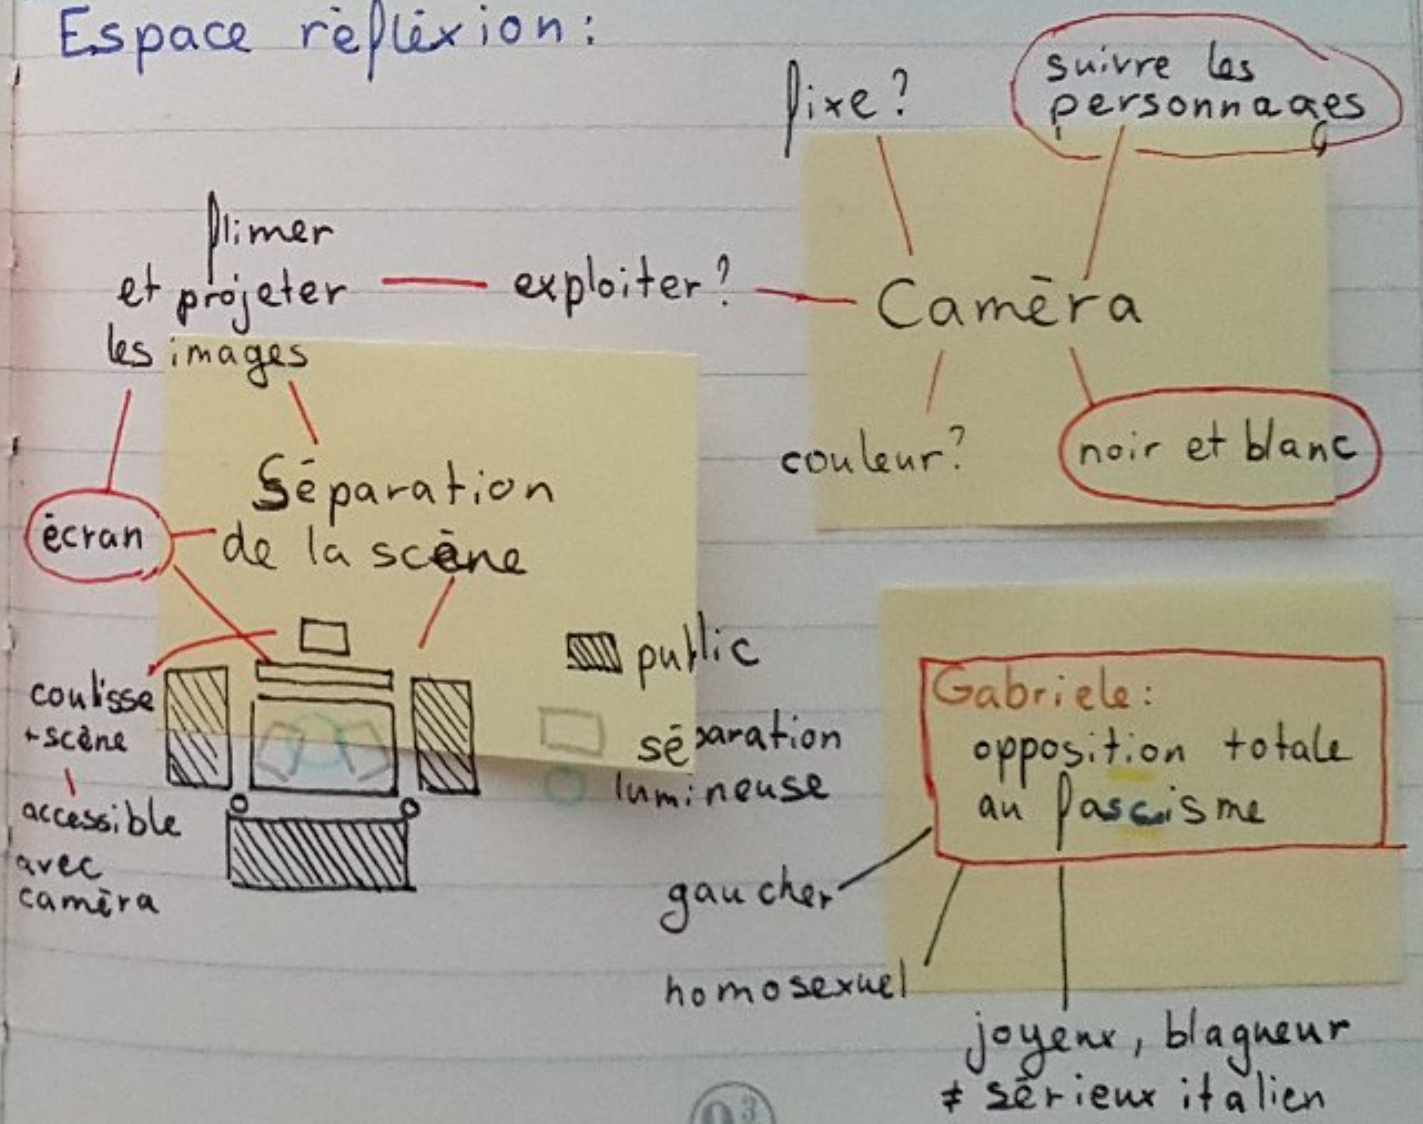 Espace réfléxion :
fixe ?
suivre les
personnages
flimer
et projeter
les images
exploiter ?
Caméra
couleur ?
noir et blanc
Séparation
de la scène
écran
coulisse
+ scène
accessible
avec
caméra
public
séparation
lumineuse
Gabriele :
opposition totale
au fascisme
gaucher
homosexuel
joyeux, blagueur
≠ sérieux italien